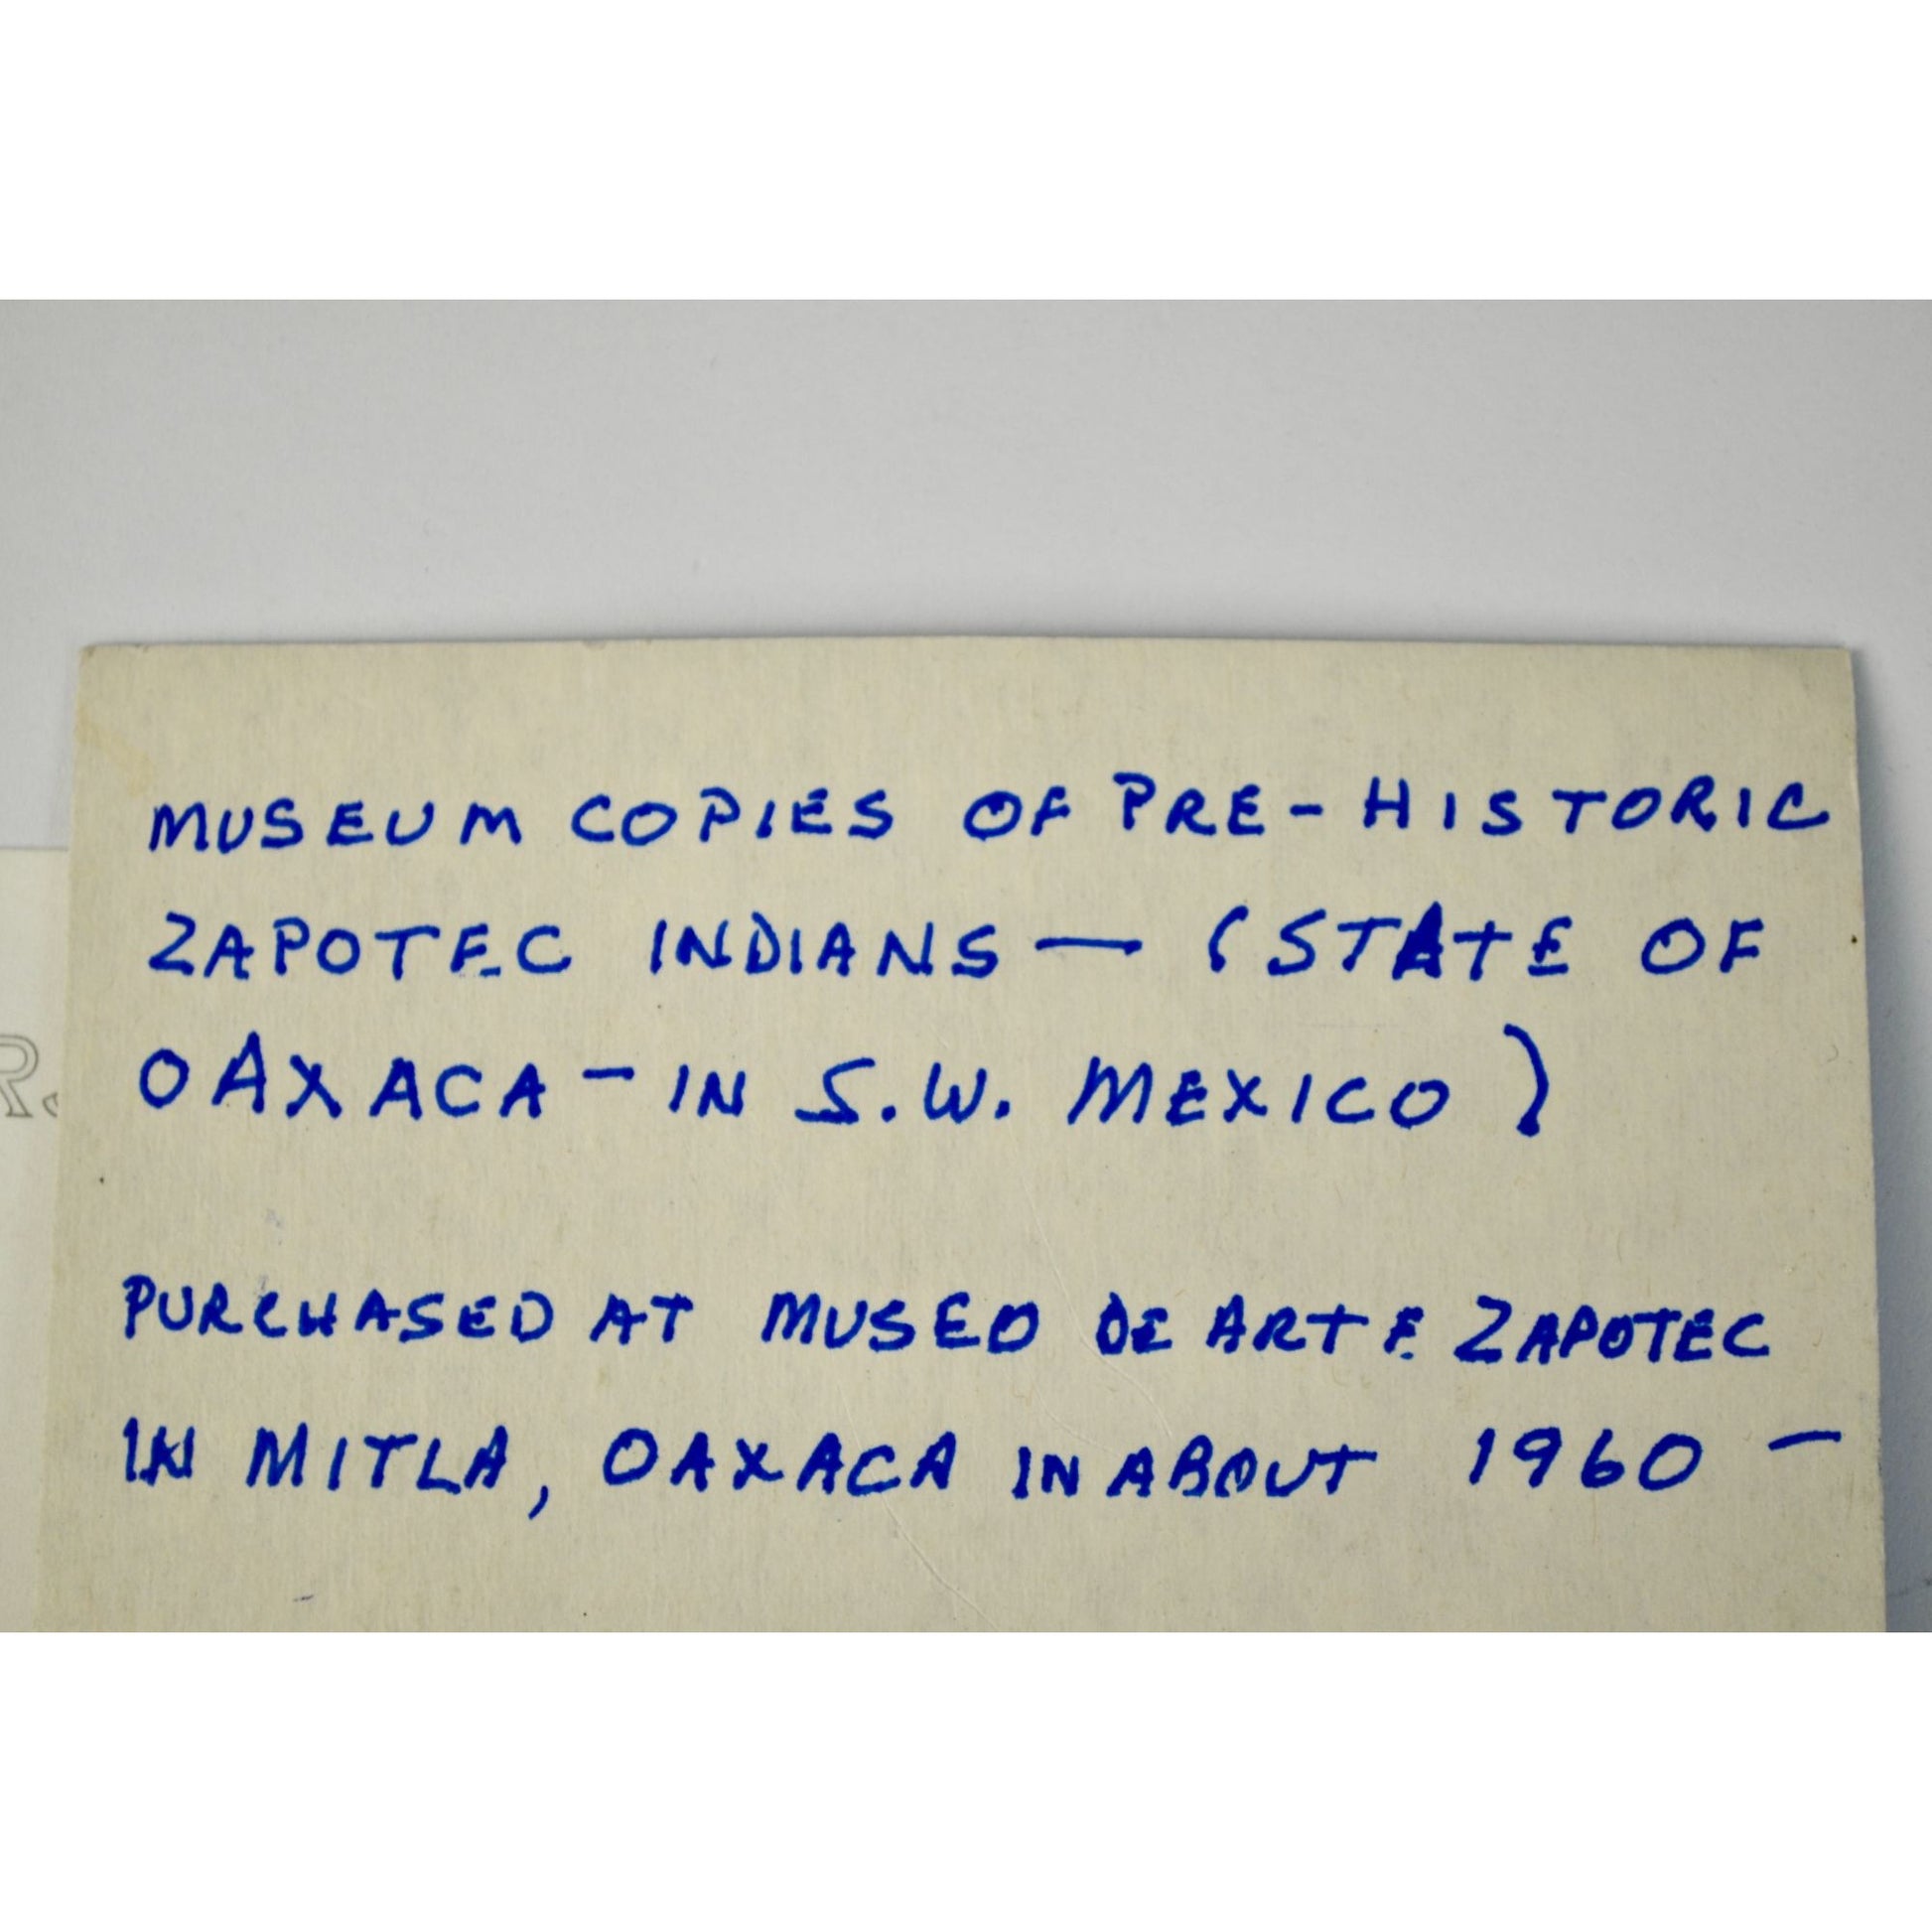 MUSEUM COPIES OF PRE-HISTORIC
ZAPOTEC INDIANS — (STATE OF
OAXACA - IN S.W. MEXICO)
PURCHASED AT MUSEO DE ARTE ZAPOTEC
IN MITLA, OAXACA IN ABOUT 1960 —
R.